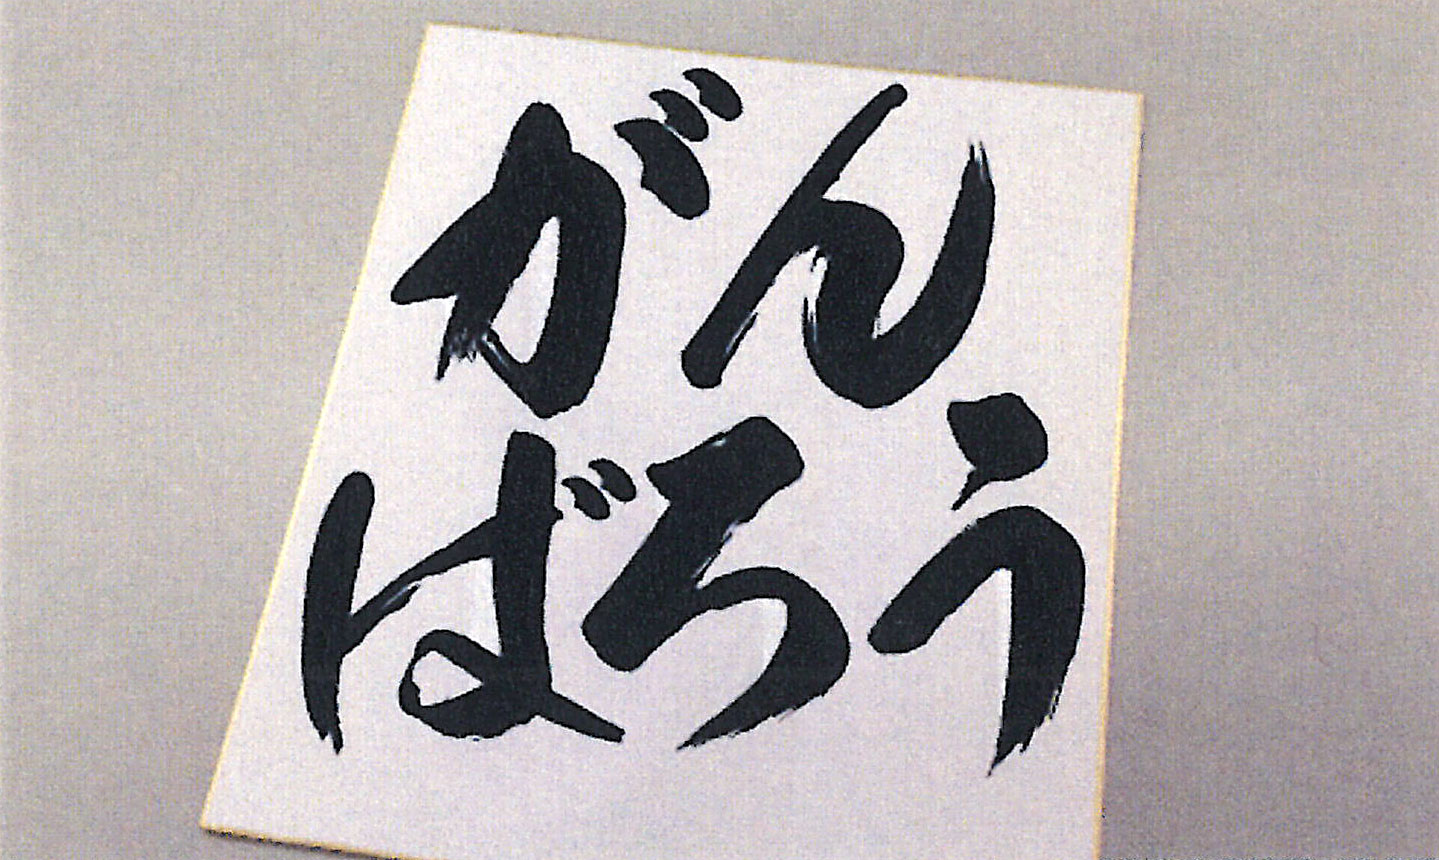 がん
ばろう